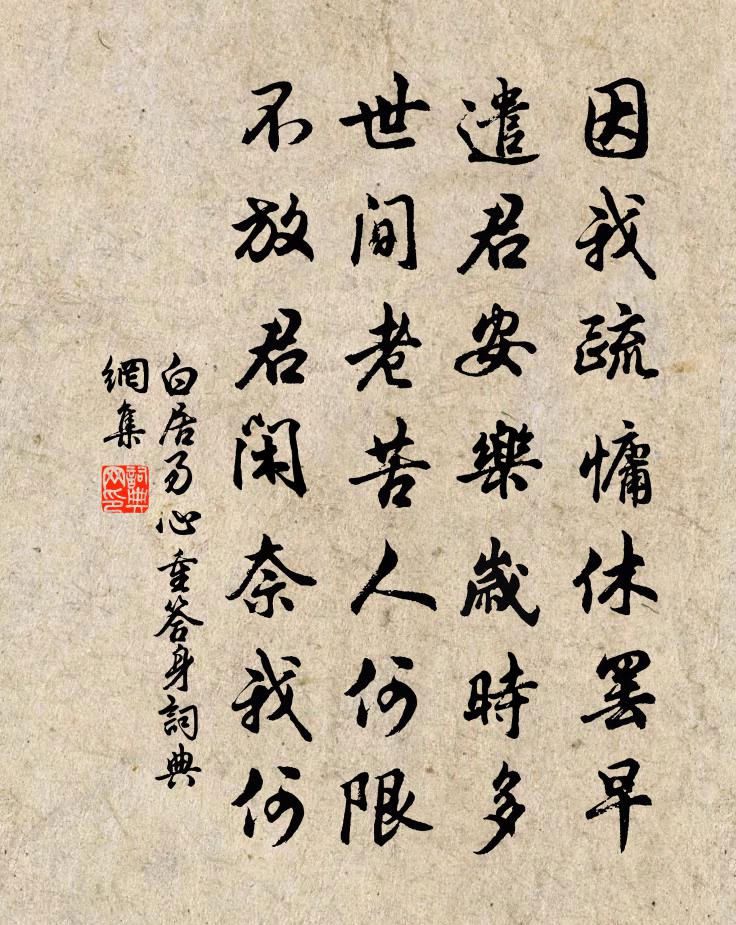 因我疏慵休罢早
遣君安樂歲時多
世间老苦人何限
不放君闲奈我何
白居易心重答身詞典
網集
詞典
网印